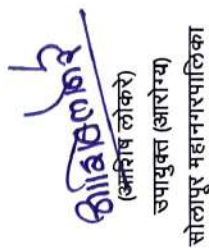 (आशिष लोकरे)
उपायुक्त (आरोग्य)
सोलापूर महानगरपालिका